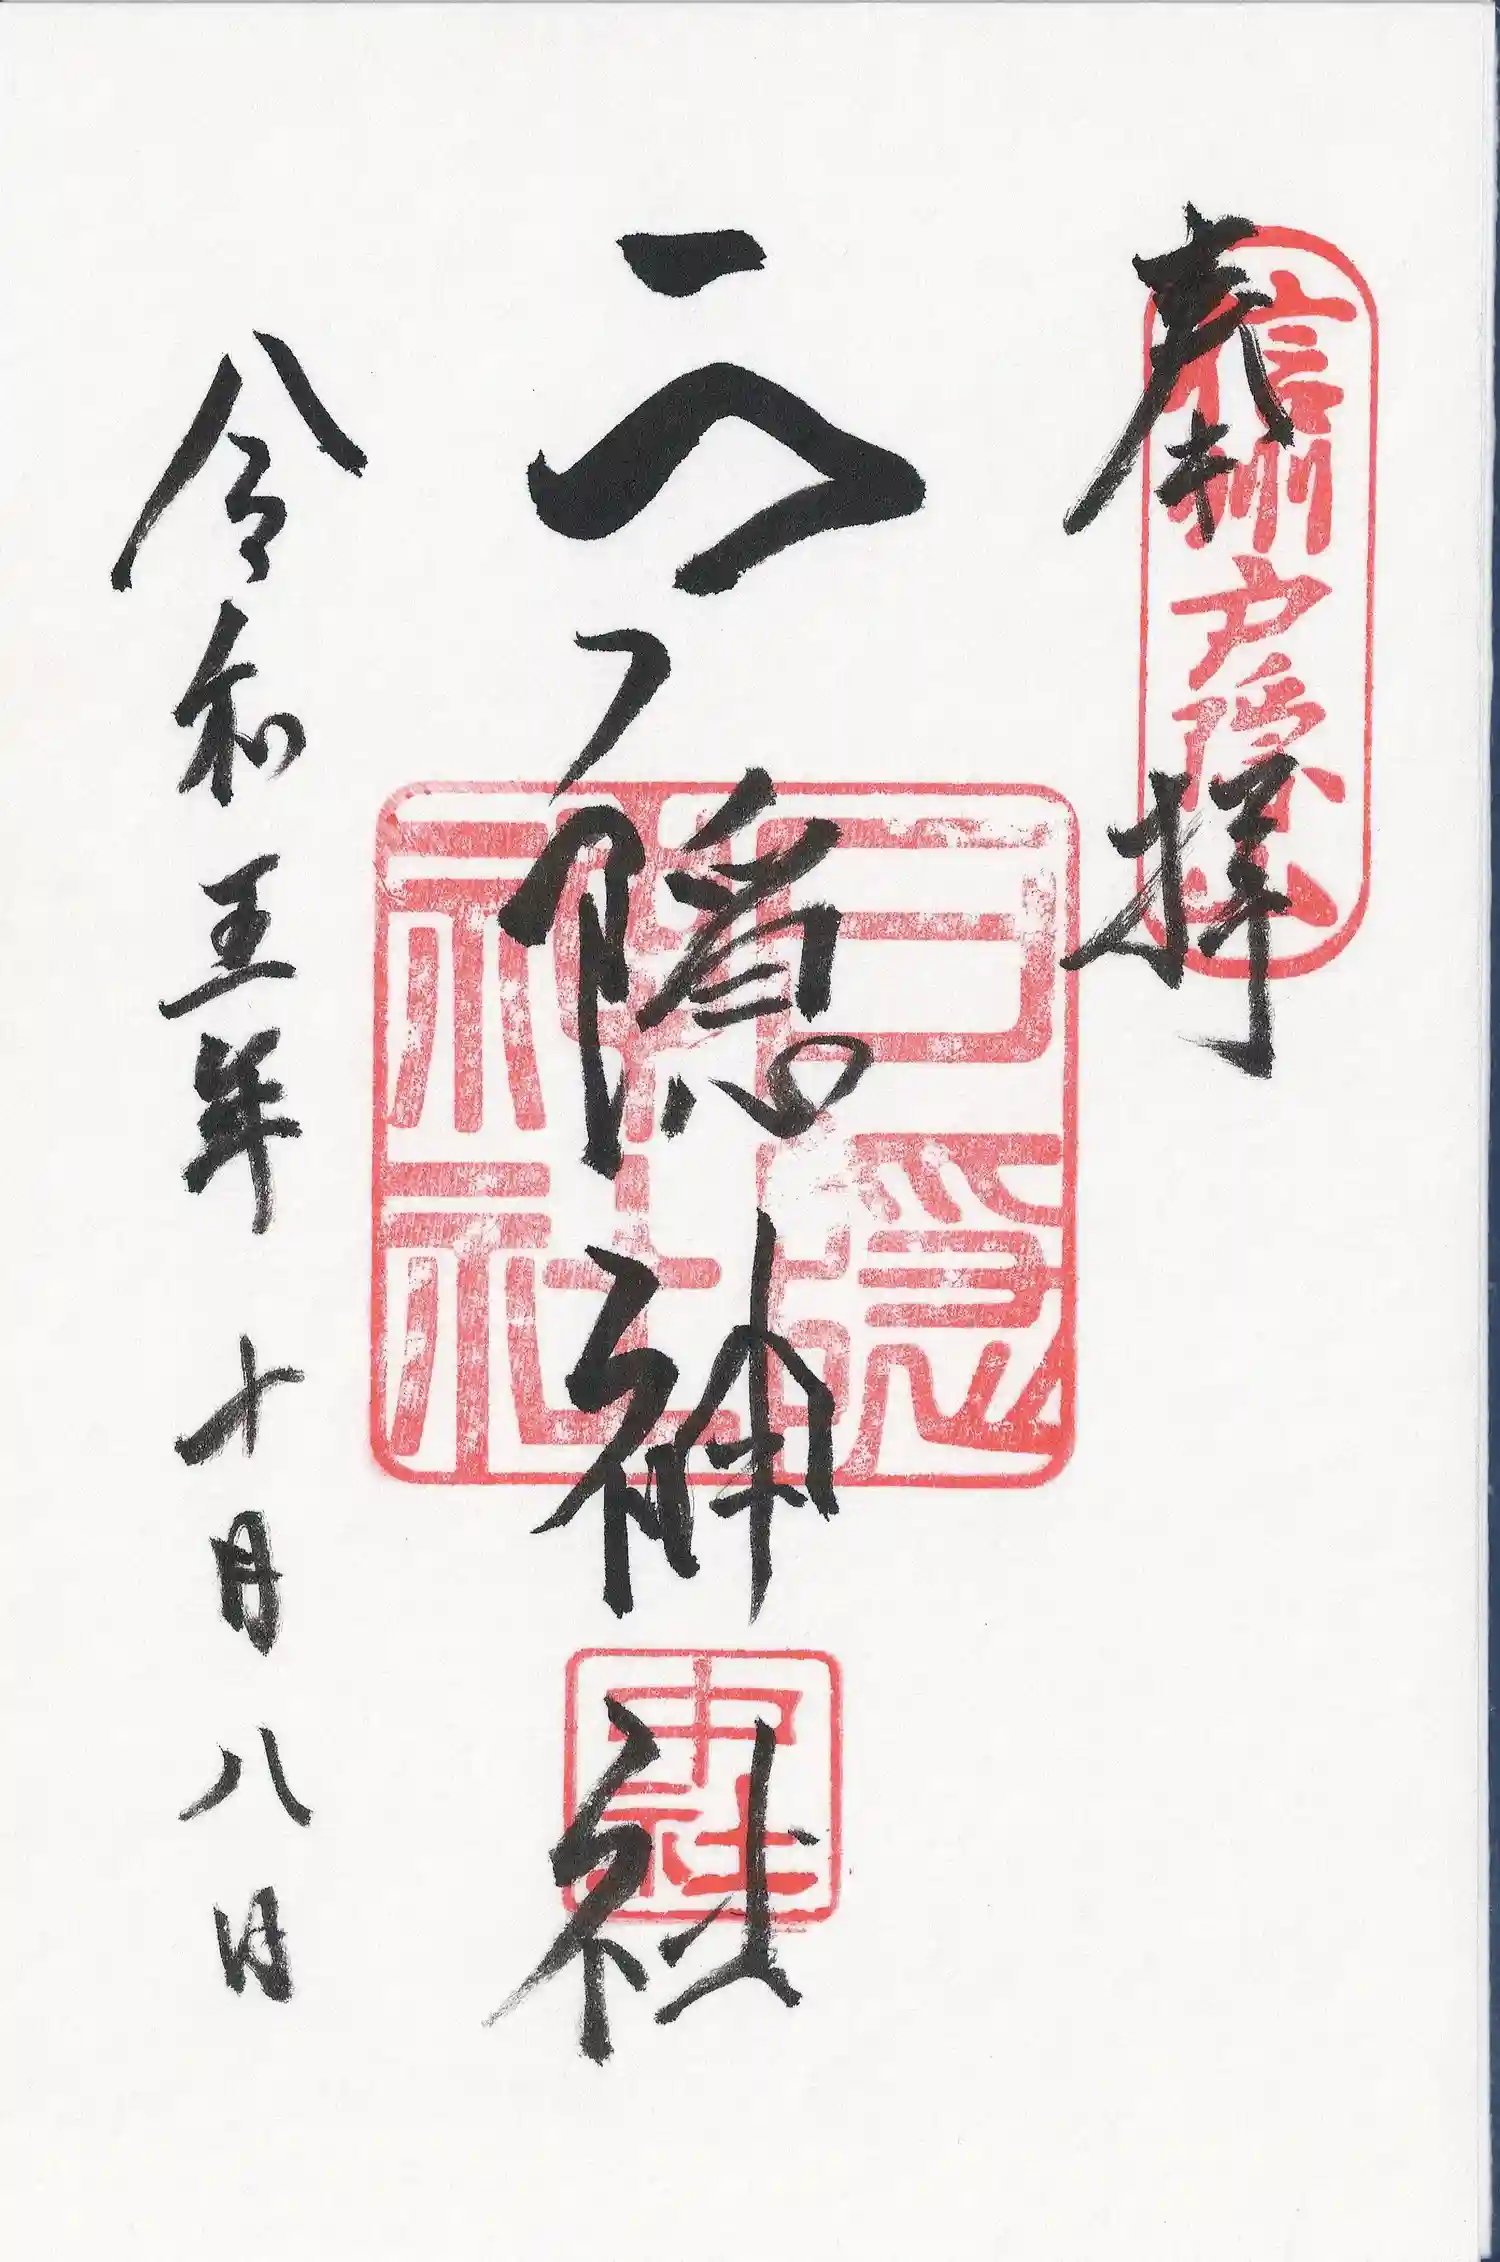 奉拝
信州戸隠山
戸隠神社
戸隠神社
中社
令和五年十月八日